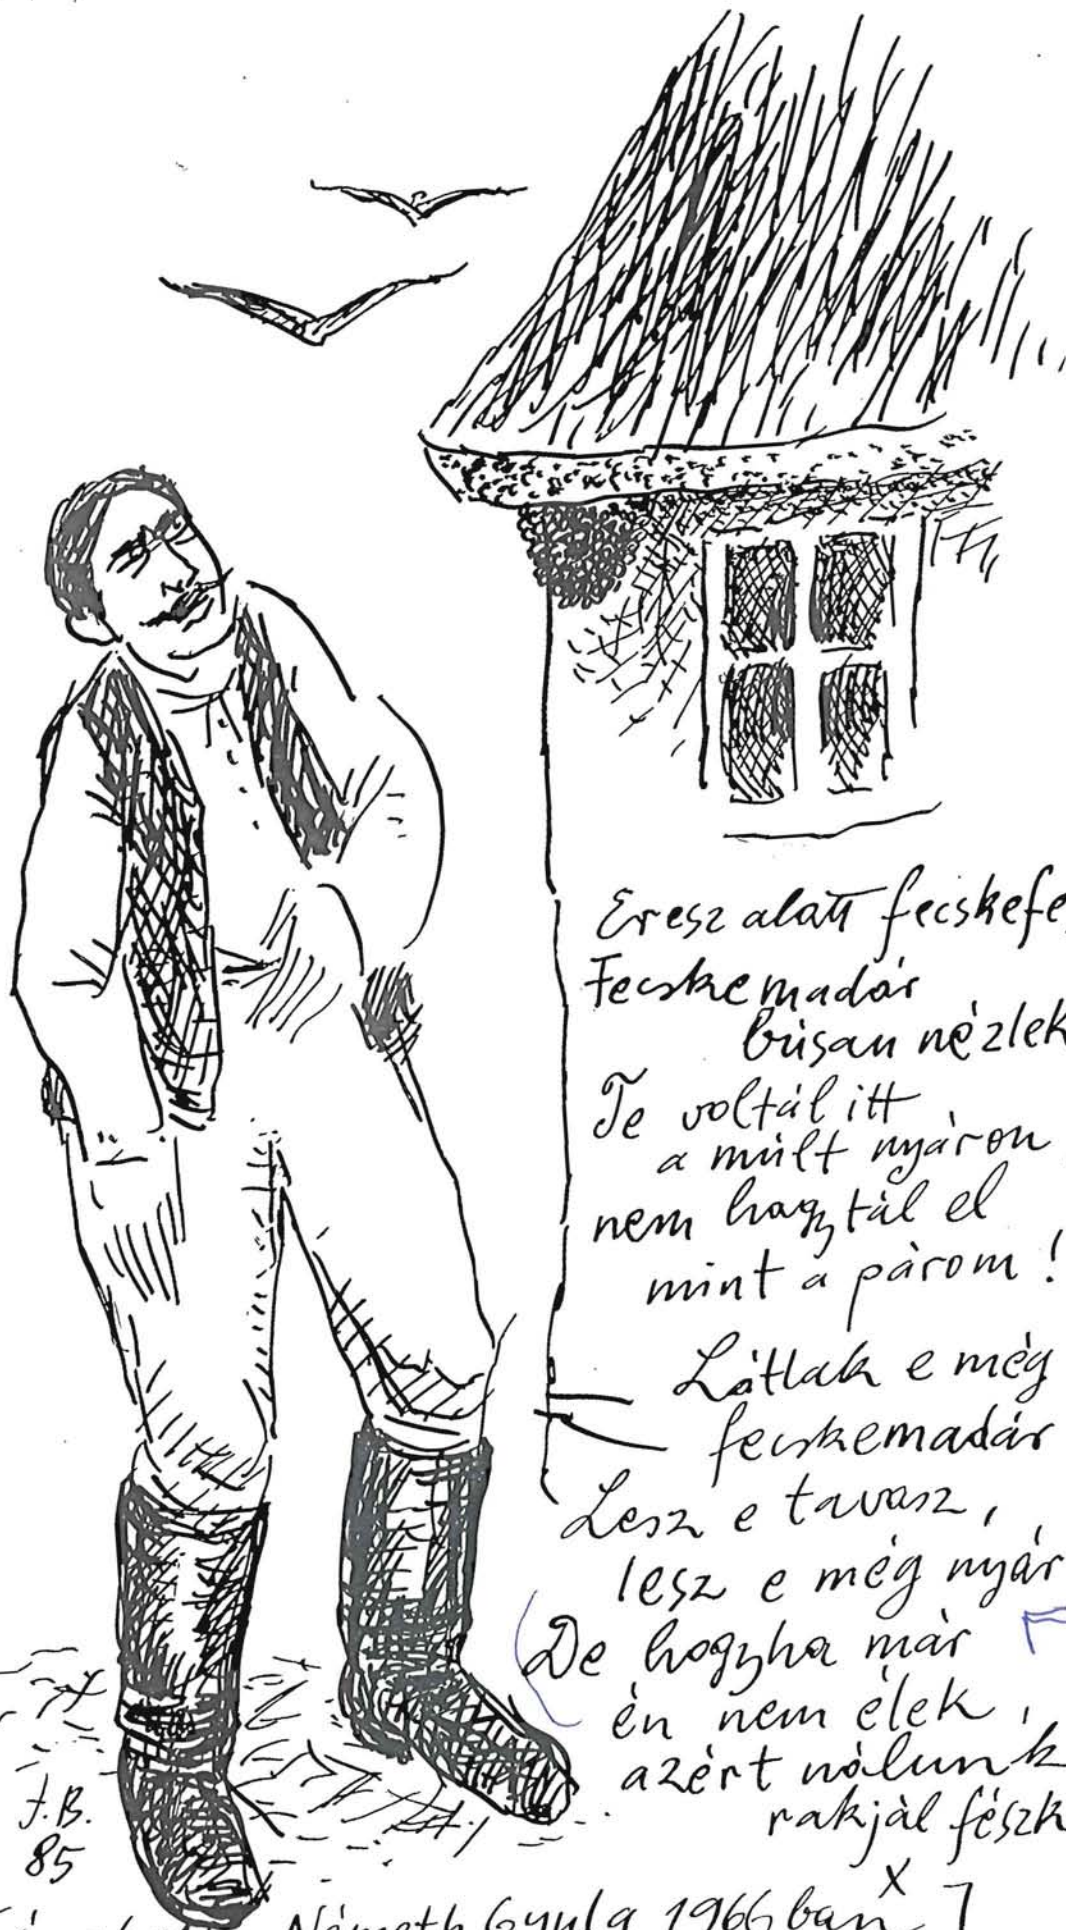 Eresz alatt fecskefé
Fecskemadár
búsan nézlek
Te voltál itt
a múlt nyáron
nem hagytál el
mint a párom!
Látlak e még
fecskemadár
Lesz e tavasz,
lesz e még nyár
De hogyha már
én nem élek,
azért nálunk
rakjál fészk
x
J.B.
85
Németh Gyula 1966 ban